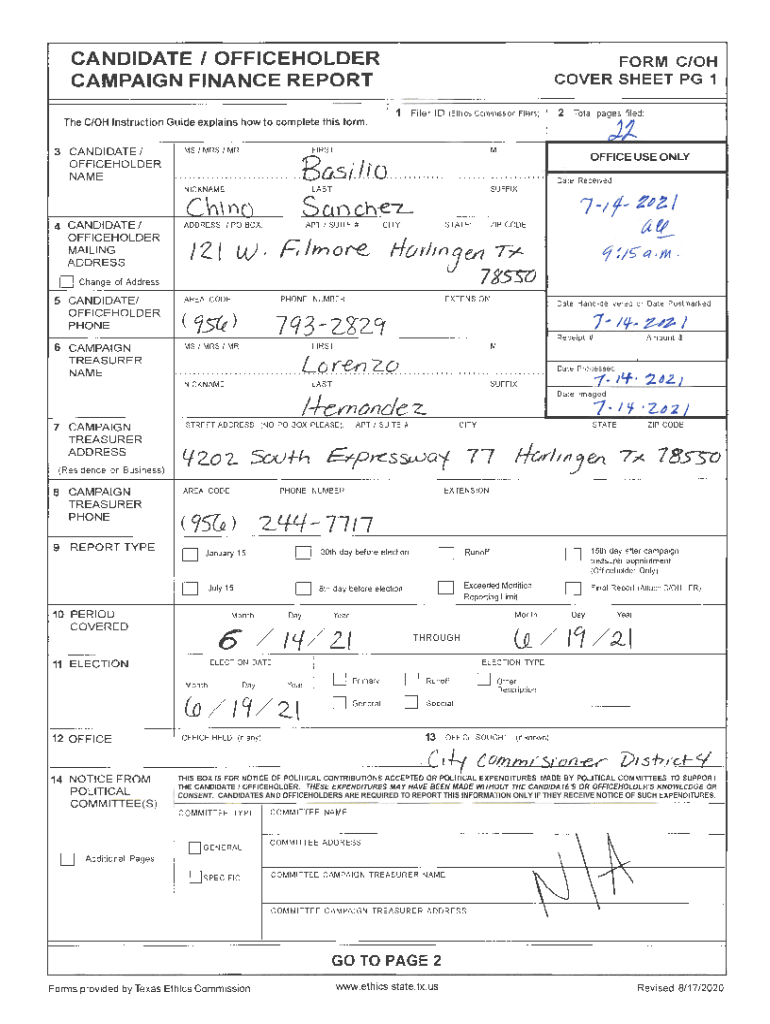 CANDIDATE / OFFICEHOLDER
CAMPAIGN FINANCE REPORT
FORM C/OH
COVER SHEET PG 1
The C/OH Instruction Guide explains how to complete this form.
1 Filer ID (Ethics Commission Filers)
2 Total pages filed:
22
3 CANDIDATE / OFFICEHOLDER NAME
MS / MRS / MR FIRST MI
Basilio
NICKNAME LAST SUFFIX
Chino Sanchez
OFFICE USE ONLY
Date Received
7-14-2021
9:15 a.m.
4 CANDIDATE / OFFICEHOLDER MAILING ADDRESS
Change of Address
ADDRESS / PO BOX; APT / SUITE # CITY STATE ZIP CODE
121 W. Filmore Harlingen Tx
78550
5 CANDIDATE/ OFFICEHOLDER PHONE
AREA CODE PHONE NUMBER EXTENSION
(956) 793-2829
Date Hand-delivered or Date Postmarked
7-14-2021
Receipt # Amount $
6 CAMPAIGN TREASURER NAME
MS / MRS / MR FIRST MI
Lorenzo
NICKNAME LAST SUFFIX
Hernandez
Date Processed
7-14-2021
Date Imaged
7-14-2021
7 CAMPAIGN TREASURER ADDRESS
(Residence or Business)
STREET ADDRESS (NO PO BOX PLEASE); APT / SUITE # CITY STATE ZIP CODE
4202 South Expressway 77 Harlingen Tx 78550
8 CAMPAIGN TREASURER PHONE
AREA CODE PHONE NUMBER EXTENSION
(956) 244-7717
9 REPORT TYPE
January 15 30th day before election Runoff 15th day after campaign treasurer appointment (Officeholder Only)
July 15 8th day before election Exceeded Modified Reporting Limit Final Report (Attach C/OH - FR)
10 PERIOD COVERED
Month Day Year Month Day Year
6 / 14 / 21 THROUGH 6 / 19 / 21
11 ELECTION
ELECTION DATE ELECTION TYPE
Month Day Year
6 / 19 / 21
Primary Runoff Other Description
General Special
12 OFFICE
OFFICE HELD (if any)
13 OFFICE SOUGHT (if known)
City Commisioner District 4
14 NOTICE FROM POLITICAL COMMITTEE(S)
THIS BOX IS FOR NOTICE OF POLITICAL CONTRIBUTIONS ACCEPTED OR POLITICAL EXPENDITURES MADE BY POLITICAL COMMITTEES TO SUPPORT
THE CANDIDATE / OFFICEHOLDER. THESE EXPENDITURES MAY HAVE BEEN MADE WITHOUT THE CANDIDATE'S OR OFFICEHOLDER'S KNOWLEDGE OR
CONSENT. CANDIDATES AND OFFICEHOLDERS ARE REQUIRED TO REPORT THIS INFORMATION ONLY IF THEY RECEIVE NOTICE OF SUCH EXPENDITURES.
COMMITTEE TYPE COMMITTEE NAME
GENERAL
COMMITTEE ADDRESS
Additional Pages
SPECIFIC
COMMITTEE CAMPAIGN TREASURER NAME
N/A
COMMITTEE CAMPAIGN TREASURER ADDRESS
GO TO PAGE 2
Forms provided by Texas Ethics Commission www.ethics.state.tx.us Revised 8/17/2020